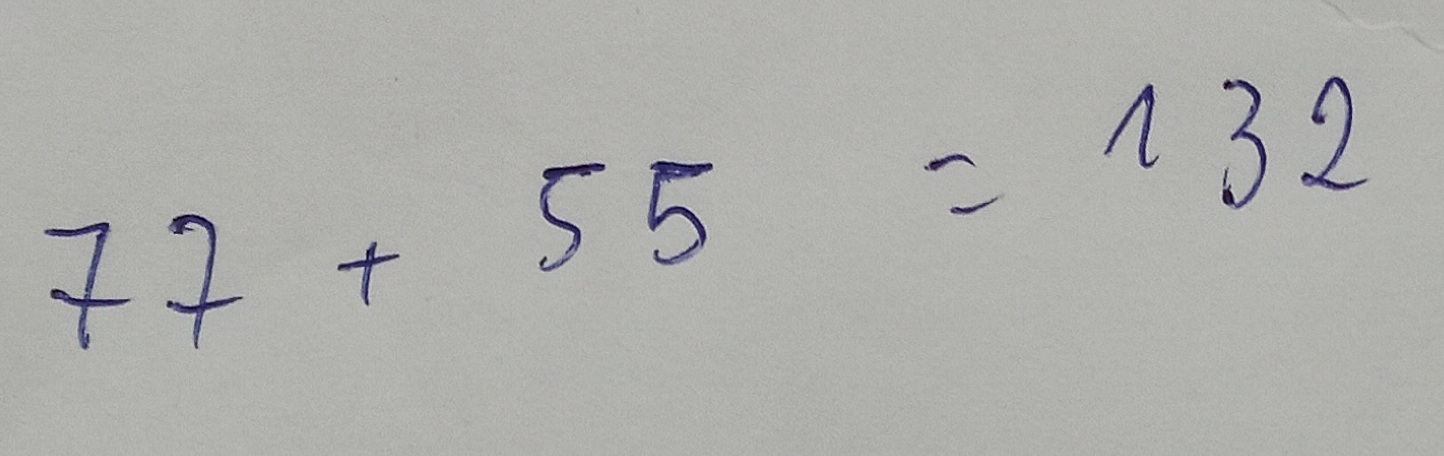 77 + 55 = 132